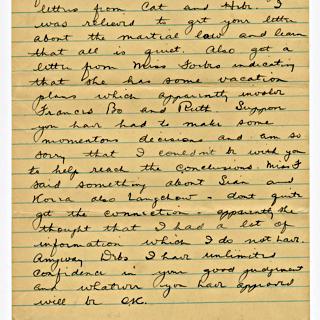 letters from Cat and Hebe. I
was relieved to get your letter
about the martial law and learn
that all is quiet. Also got a
letter from Miss Forbes indicating
that she has some vacation
plans which apparently involve
Frances Bo and Ruth. Suppose
you have had to make some
momentous decisions and am so
sorry that I couldn't be with you
to help reach the conclusions. Miss F
said something about Sian and
Korea also Langchow - dont quite
get the connection - apparently she
thought that I had a lot of
information which I do not have.
Anyway Dibs I have unlimited
confidence in your good judgment
and whatever you have approved
will be OK.